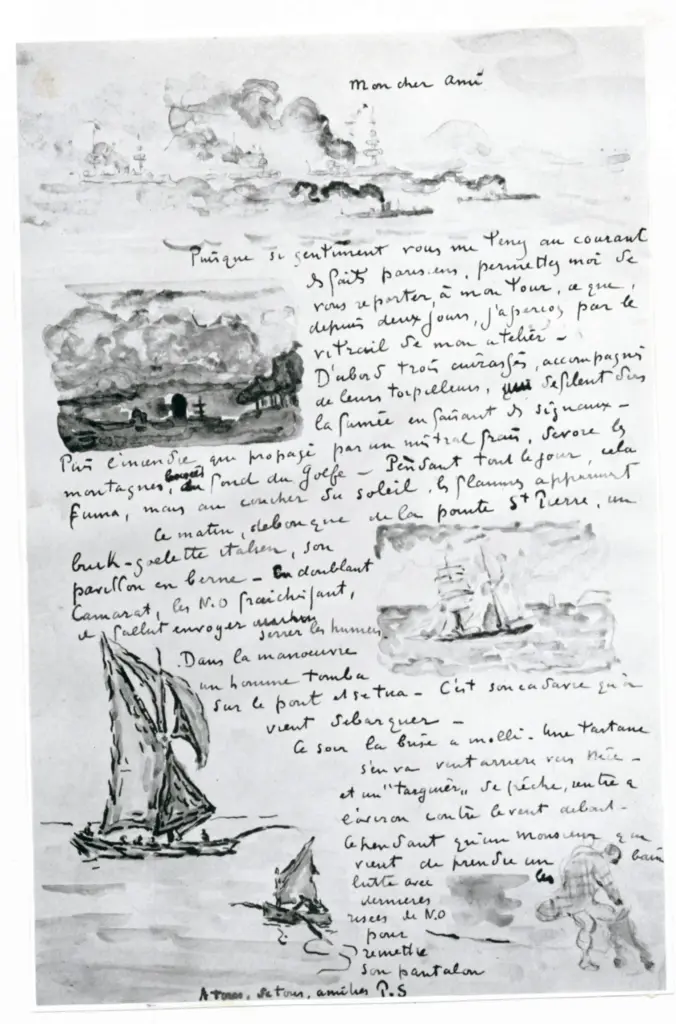 Mon cher ami
Puisque si gentiment vous me tenez au courant
des faits parisiens, permettez moi de
vous reporter, à mon tour, ce que,
depuis deux jours, j'aperçois par le
vitrail de mon atelier –
D'abord trois cuirassés, accompagnés
de leurs torpilleurs, défilent dans
la fumée en faisant des signaux –
Puis l'incendie qui propagé par un mistral frais, dévore les
montagnes, du fond du Golfe – Pendant tout le jour, cela
fuma, mais au coucher du soleil, les flammes apparurent
Ce matin, débouque de la pointe St Pierre, un
brick-goelette italien, son
pavillon en berne – En doublant
Camarat, les N.O fraichissant,
il fallut envoyer
serrer les huniers
Dans la manoeuvre
un homme tomba
sur le pont et se tua – C'est son cadavre qu'on
vient débarquer –
Ce soir la brise a molli – Une tartane
s'en va vent arriere vers Nice –
et un "targuier" de pêche, rentre a
l'aviron contre le vent debout –
Cependant qu'un Monsieur qui
vient de prendre un bain
lutte avec les
dernieres
risées de N.O
pour
remettre
son pantalon
A tous, de tous, amitiés P.S